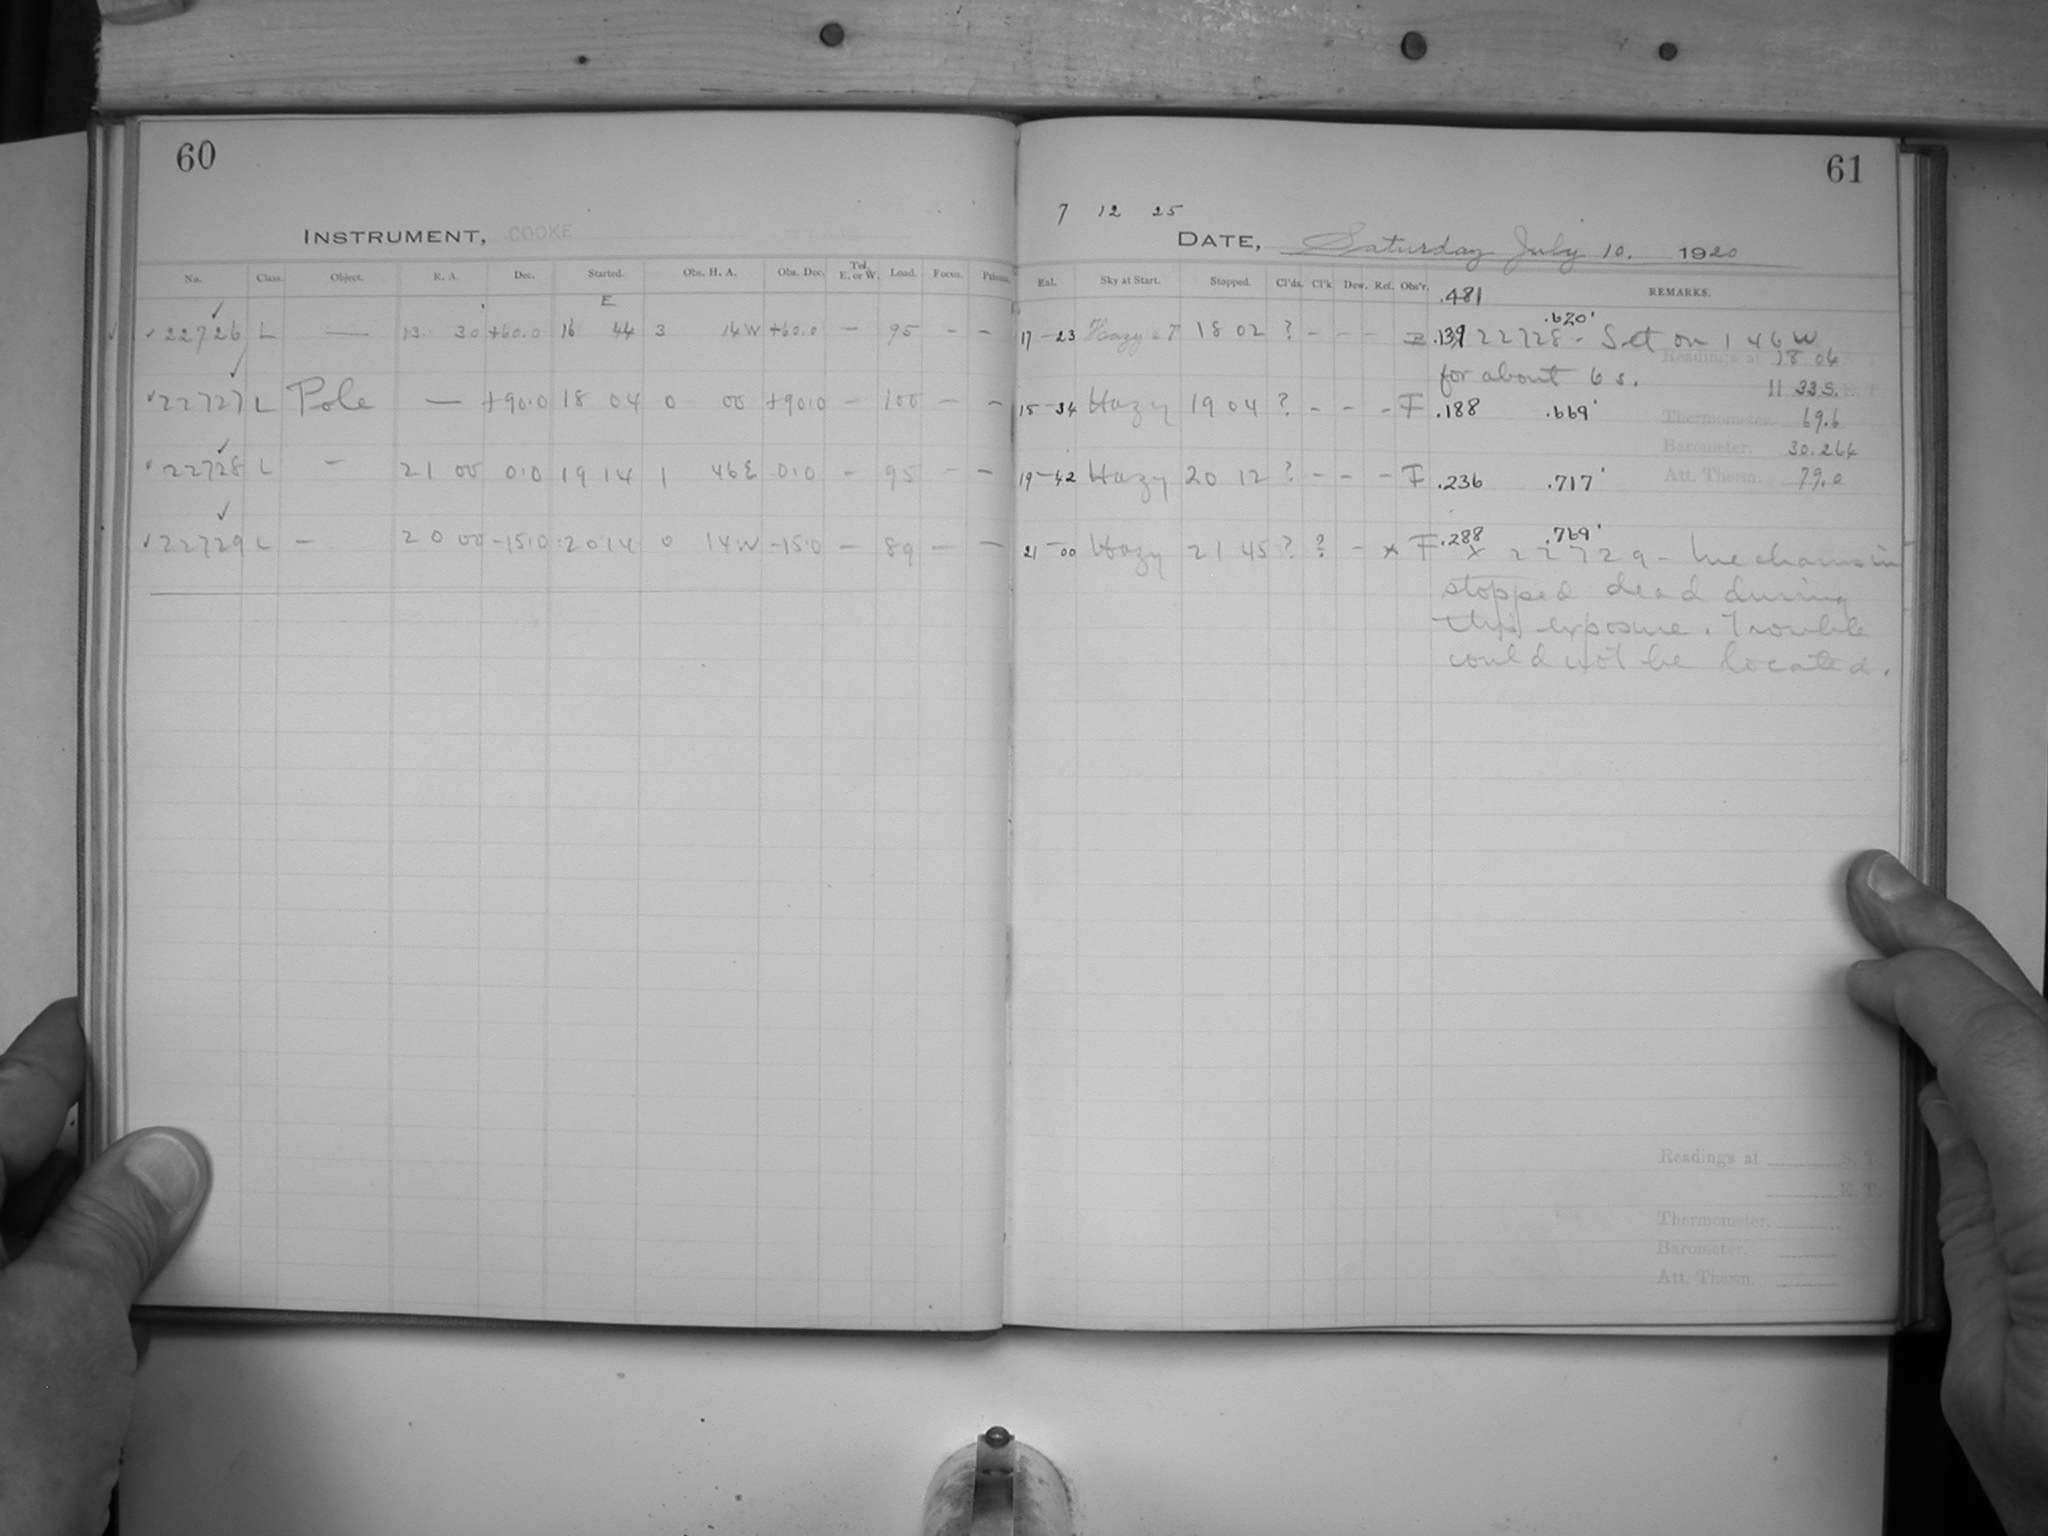 60
INSTRUMENT, COOKE
No. Class. Object. R. A. Dec. Started. Obs. H. A. Obs. Dec. Tel. E. or W. Load. Focus.
E
✓ 22726 L — 13 30 +60.0 16 44 3 14 W +60.0 — 95 - -
✓ 22727 L Pole — +90.0 18 04 0 00 +90.0 — 100 — -
22728 L - 21 00 0.0 19 14 1 46 E 0.0 - 95 - -
✓ 22729 L - 20 00 -15.0 20 14 0 14 W -15.0 — 89 — -
61
7 12 25
DATE, Saturday July 10. 1920
Sky at Start. Stopped. Cl'ds. Cl'k Dew. Ref. Obs'r. REMARKS.
.481
17-23 Hazy 18 02 ? - - - .139 .620'
22728 - Set on 1 46 W
for about 6 s.
Readings at 18 04
11 33 S.
15-34 Hazy 19 04 ? - - - F .188 .669'
Thermometer. 69.6
Barometer. 30.264
19-42 Hazy 20 12 ? - - - F .236 .717'
Att. Therm. 79.0
21-00 Hazy 21 45 ? ? - x F .288 .769'
x 22729 - Mechanism
stopped dead during
this exposure. Trouble
could not be located.
Readings at S. T.
Thermometer.
Barometer.
Att. Therm.